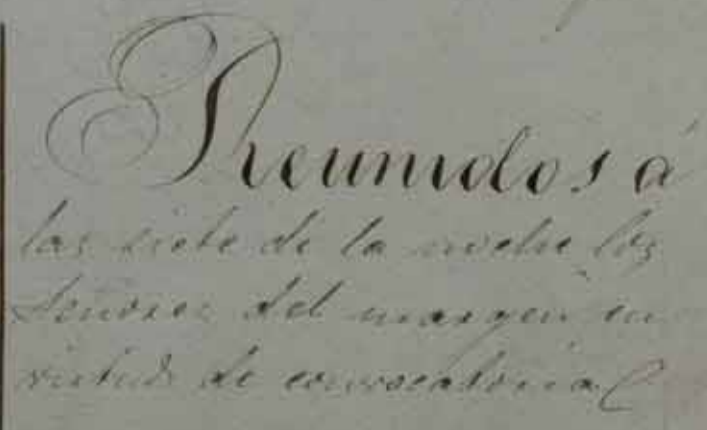 Reunidos á
las siete de la noche los
Señores del margen en
virtud de convocatoria